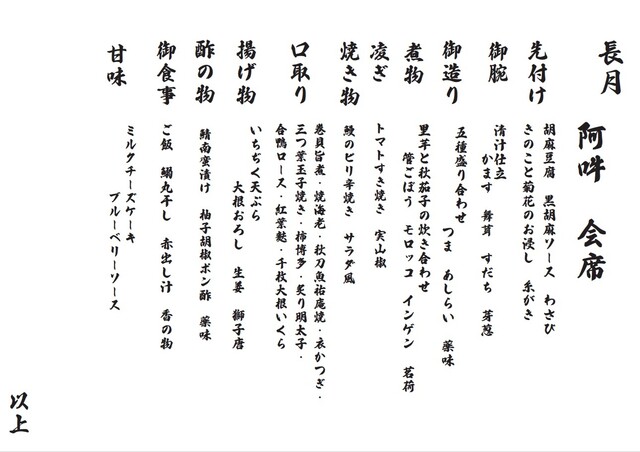 長月
阿吽 会席
先付け
胡麻豆腐 黒胡麻ソース わさび
きのこと菊花のお浸し 糸がき
御腕
清汁仕立
かます 舞茸 すだち 芽葱
御造り
五種盛り合わせ つま あしらい 薬味
煮物
里芋と秋茄子の炊き合わせ
管ごぼう モロッコ インゲン 茗荷
凌ぎ
トマトすき焼き 実山椒
焼き物
鰻のピリ辛焼き サラダ風
口取り
巻貝旨煮・焼海老・秋刀魚祐庵焼・衣かつぎ・
三つ葉玉子焼き・柿博多・炙り明太子・
合鴨ロース・紅葉麩・千枚大根いくら
揚げ物
いちぢく天ぷら
大根おろし 生姜 獅子唐
酢の物
鯖南蛮漬け 柚子胡椒ポン酢 薬味
御食事
ご飯 鰯丸干し 赤出し汁 香の物
甘味
ミルクチーズケーキ
ブルーベリーソース
以上